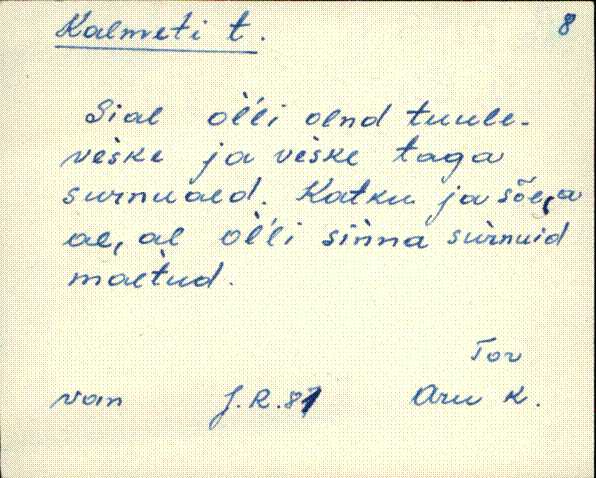 Kalmeti t. 8
Sial ol̀li olnd tuule-
veske ja veske taga
surnuaed. Katku ja sõe, a
ae, al ol̀li sinna surnuid
maetud.
Tor
van J.R. 81 Aru k.